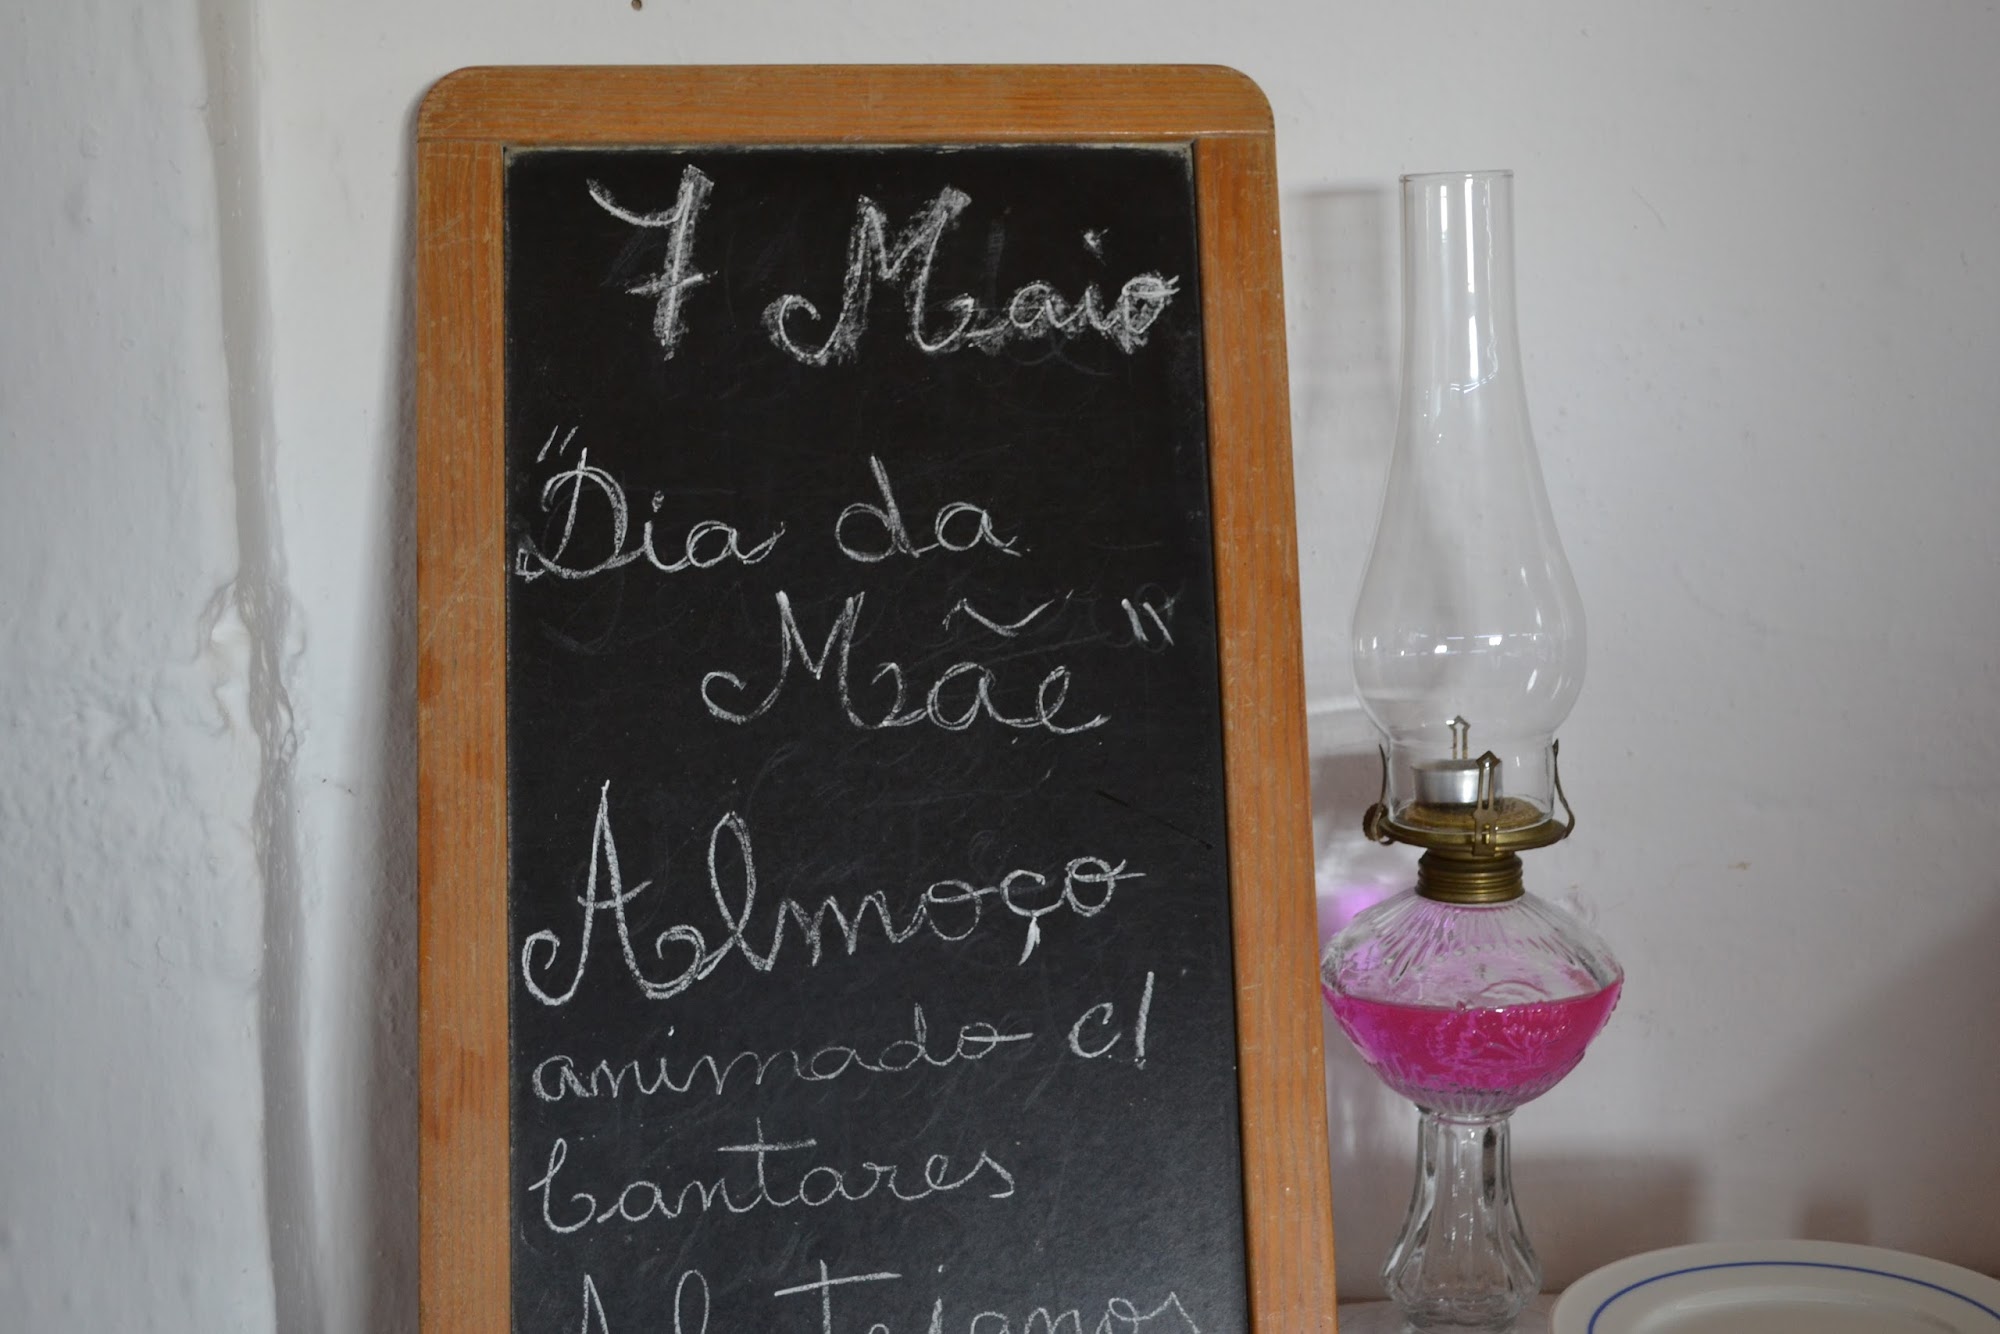 7 Maio
"Dia da
Mãe"
Almoço
animado c/
Cantares
Alentejanos